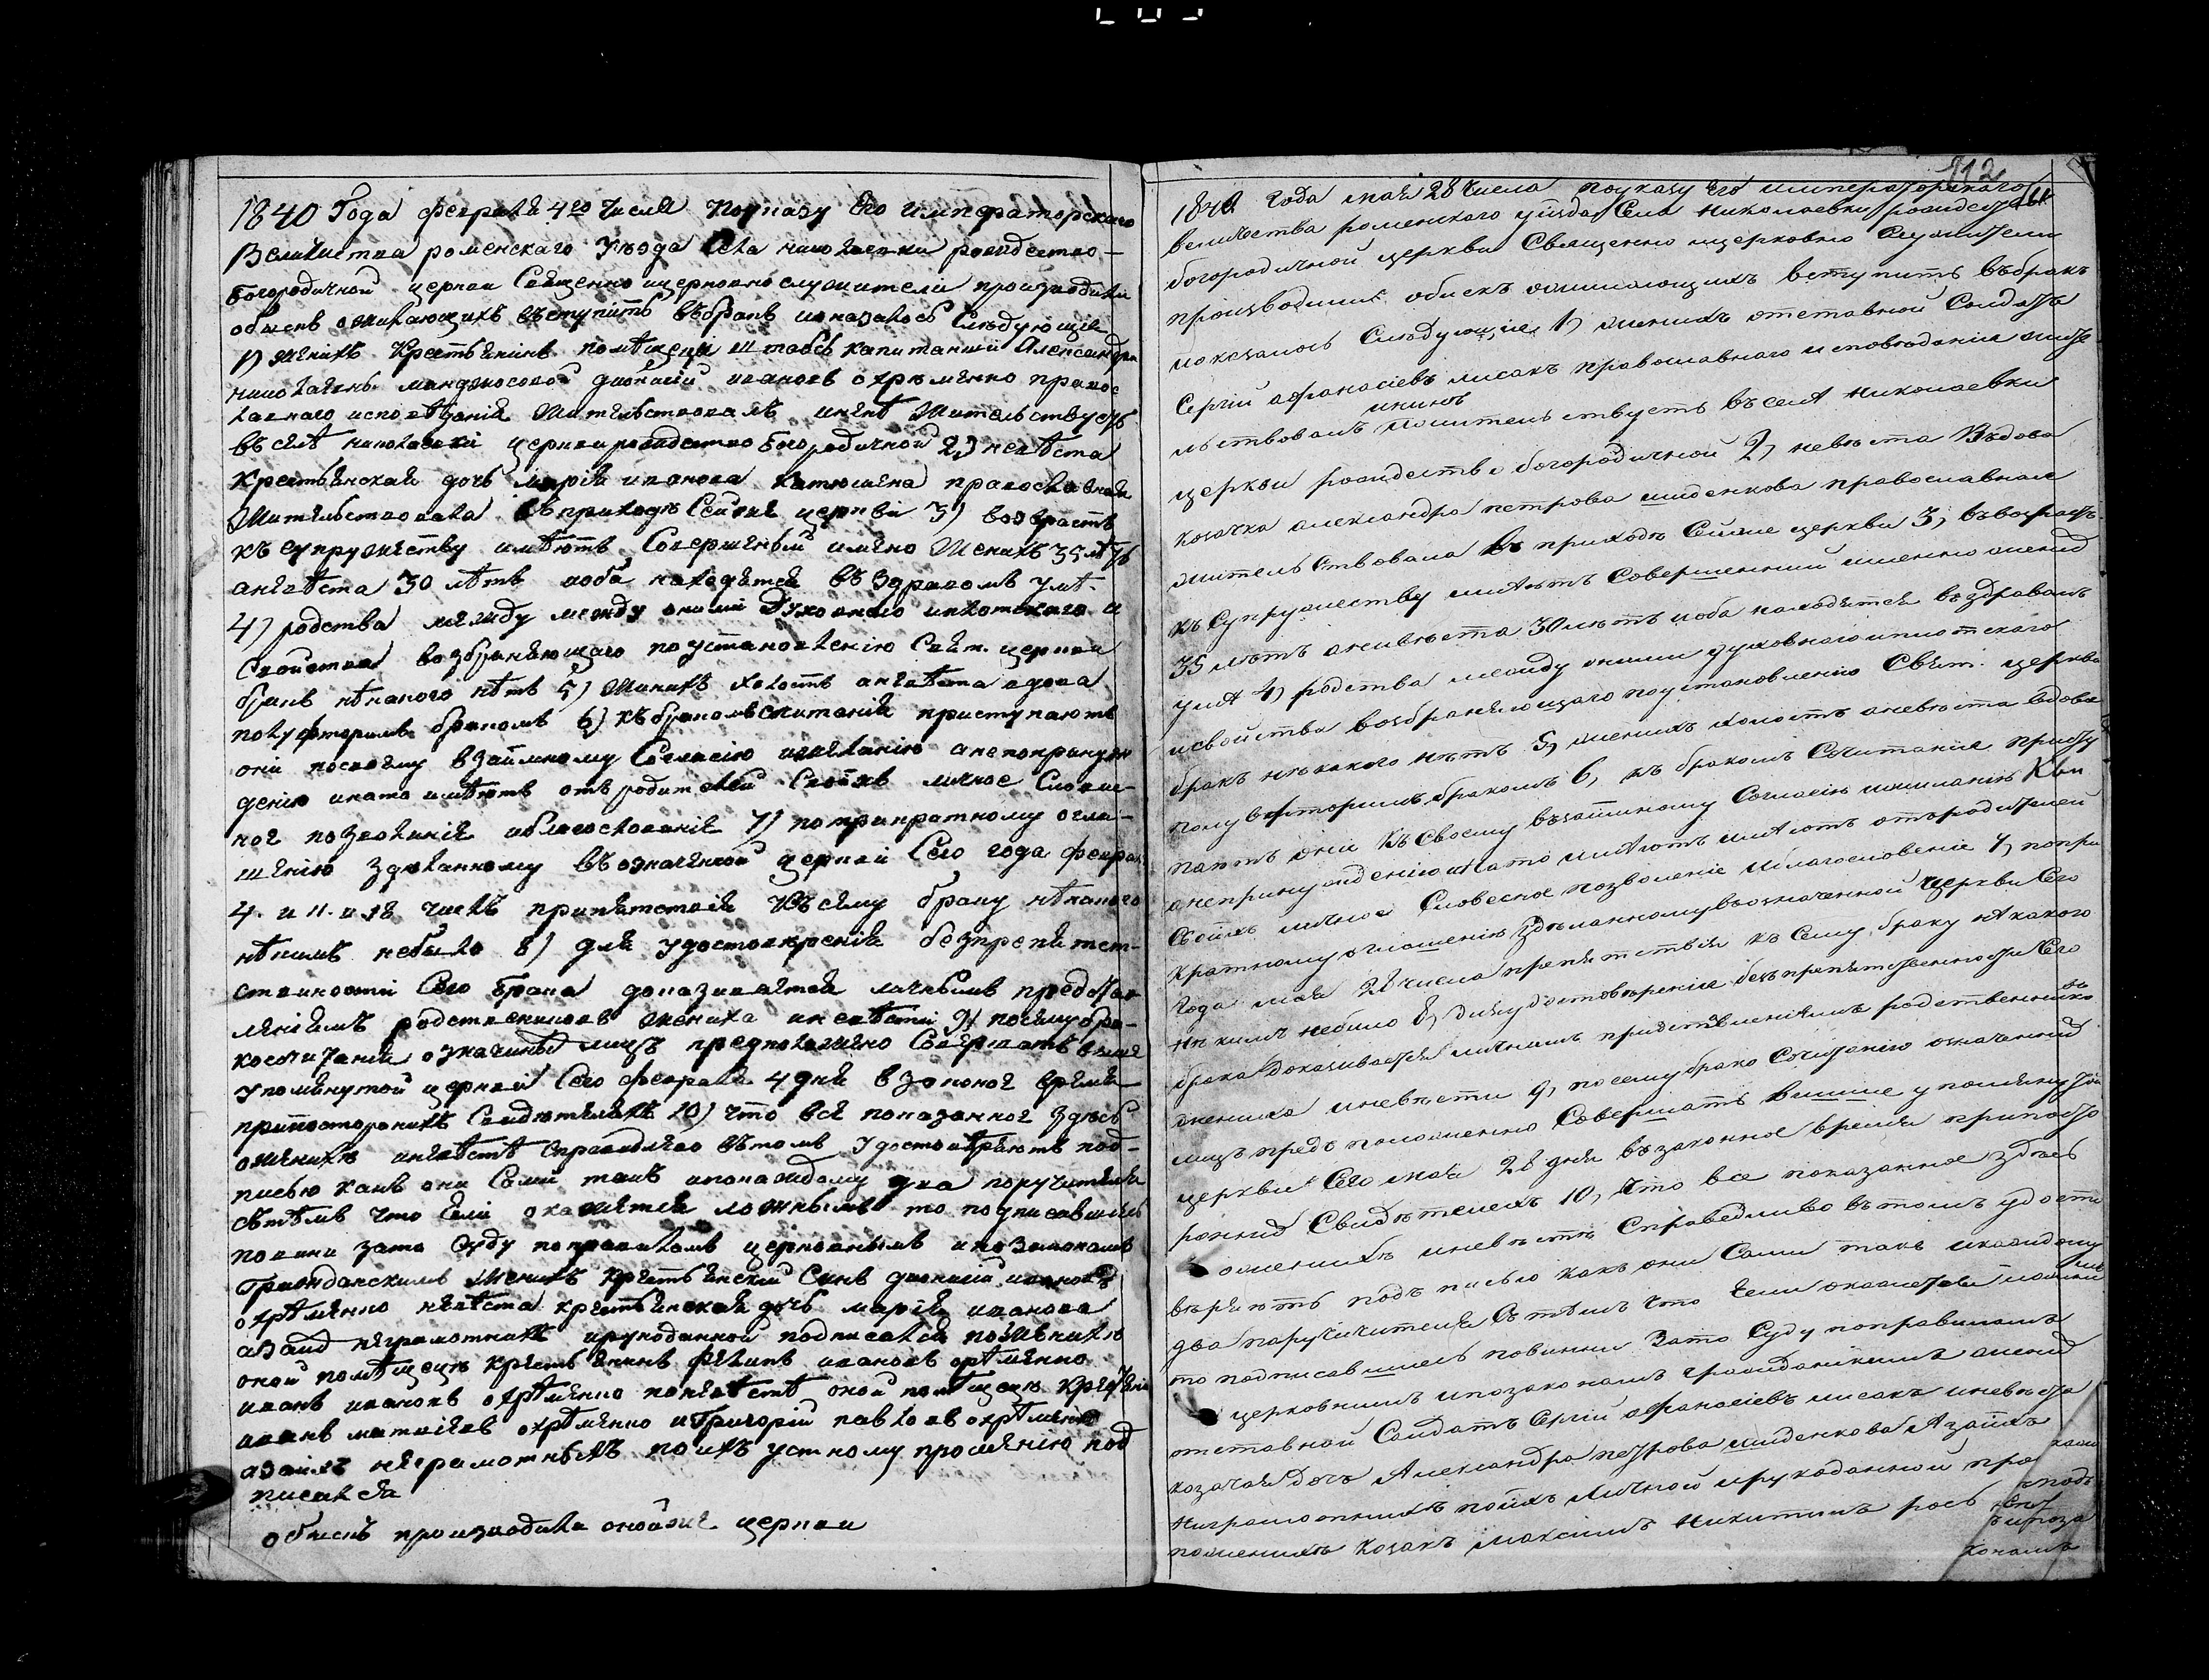 1840 Года февраля 4го числа Поуказу Его императорскаго
Величества роменскаго уъзда Села николаевки рождество-
богородичной церкви Священно ицерковно служители производили
обыскъ ожелающихъ вступить въбракъ иоказалось Слъдующіе
1) женихъ Крестьянинъ помѣщици штабсъ капитанши Александри
николаевны дионисій ивановъ охрѣменко правос
лавнаго исповѣданія жительствовалъ ининѣ жительствуетъ
въ селѣ николаевки церкви рождество богородичной 2) невѣста
крестьянская дочь марія иванова православная
жительствовала въ приходѣ Сейже церкви 3) возрастъ
къ супружеству имѣютъ Совершеный имѣно женихъ 35 лѣтъ
аневѣста 30 лѣтъ иоба находятся въ здравомъ умѣ
4) родства между между ними духовнаго иплотскаго и
Свойства возбраняющаго поустановленію Свят. церкви
бракъ нѣкакого нѣтъ 5) Женихъ холостъ аневѣста вдова
полувторимъ бракомъ 6) къ бракомъ Сочитанія приступаютъ
они посвоему взаймному Согласію ижеланію анепопринуж
денію инато имѣютъ отъ родителей Своихъ личное Словес-
ное позволеніе иблагословеніе 7) потрикратному огла-
шенію здѣланному въ означеной церкви Сего года февраля
4. и 11. и 18 числъ препятствія къ сему браку нѣкакого
нѣкимъ небыло 8) для удостовереніе безпрепятст-
ственности Сего брака доказивается личнымъ предстов-
леніемъ родственниковъ жениха иневѣсти 9) посему бра-
косочитанію означеныхъ лицъ предположено Совершать выше
упомянутой церкви Сего февраля 4 дня взаконое время
припосторонихъ Свидѣтеляхъ 10) что вся показанное здѣсь
оженихѣ иневѣстѣ Справедливо вѣтомъ удостовѣряютъ под-
писью какъ они Сами такъ ипокаждому два поручителя
Сѣтѣмъ что Если окажется ложнымъ то подписавшыесь
повини зато Суду поправиламъ церковнымъ ипозаконамъ
Гражданскимъ Женихъ крестьянский Синъ дионисій ивановъ
охрѣменко невѣста крестьянская дочь марія иванова
неграмотнихъ ирукоданной подписался поженихѣ
оной помѣщици крестьянинъ ивановъ охрѣменко
иванъ ивановъ охрѣменко поневѣстѣ оной помѣщици
иванъ матвіевъ охрѣменко иГригорій павловъ охрѣменко
азайхъ неграмотныхъ поихъ устному прошенію под
писался
обыскъ производили онойже церкви

112
1840 года мая 28 числа поуказу Его императорскаго
величества роменскаго уѣзда Села Николаевки рождество
богородичной церкви Священно ицерковно Служители
производили обыскъ ожелающихъ вступить въбракъ
иоказалось Слѣдующіе 1) женихъ отставной Солдатъ
Сергій афанасіевъ лисакъ православнаго исповѣданія жите
льствовалъ ининѣ жительствуетъ въселѣ Николаевки
церкви рождество богородичной 2) невѣста Вдова
козачка александра петрова православная
жительствовала въ приходѣ Сейже церкви 3) въвозрастъ
къ Супружеству имѣютъ Совершенний именно женихъ
35 лѣтъ аневѣста 30 лѣтъ иоба находятся въздравомъ
умѣ 4) родства между ними духовнаго иплотскаго
исвойства возбраняющаго поустановленію Свят. церкви
бракъ нѣкакого нѣтъ 5) женихъ холостъ аневѣста вдова
полувторимъ бракомъ 6) къ бракомъ Сочитанія присту
паютъ они къ Своему взаимному Согласію ижеланію
анепринужденію инато имѣютъ отъродителей
Своихъ личное Словесное позволеніе иблагословеніе 7) потри
кратному оглошенію здѣланному въозначенной церкви Сего
года мая 28 числа препятствія къ Сему браку нѣкакого
нѣкимъ небило 8) для удостовѣреніе безпрепятственности Сего
брака доказивается личнимъ представленіемъ родственниковъ
жениха иневѣсти 9) посему брако Сочитанію означенний
лицъ предположенно Совершать више упомянутой
церкви Сего мая 28 дня въ законное время припосто
роннихъ Свидѣтеляхъ 10) что все показанное здѣсь
оженихѣ иневѣстѣ Справедливо вътомъ удосто
вѣряютъ подъписью какъ они Сами такъ ипокаждому
два поручителя Сътѣмъ что Если окажется ложнимъ
то подписавшиесь повинни зато Суду поправиламъ
церковнимъ ипозаконамъ гражданскимъ женихъ
отставной Солдатъ Сергій афанасіевъ лисакъ иневѣста
козачая дочь Александра петрова Азайхъ
Неграмотнихъ поихъ личной ирукоданной про
поженихѣ козакъ максимъ Никитинъ